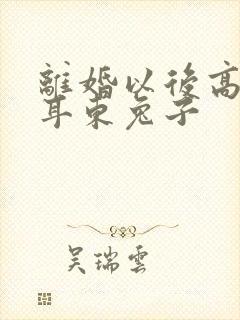 離婚以後高
耳東兔子
吴瑞雲